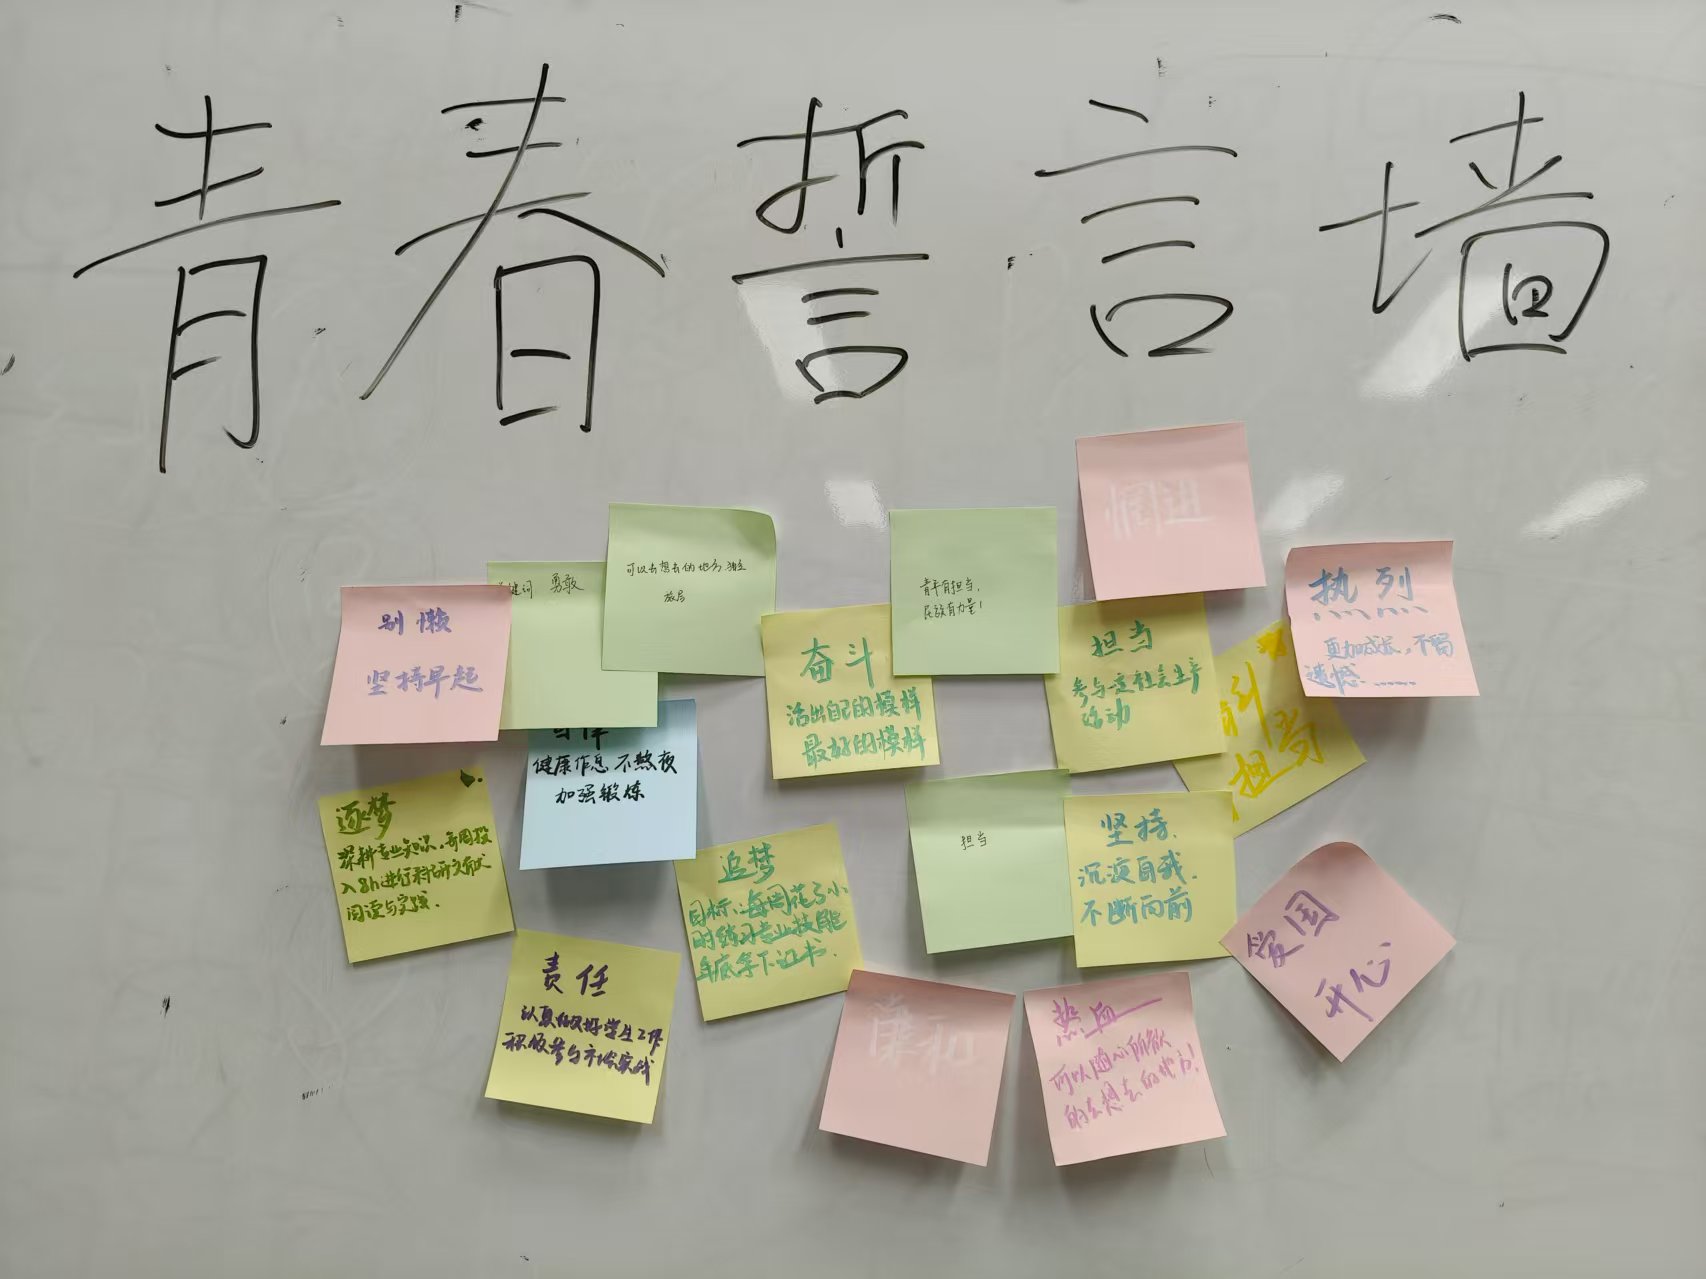 青春誓言墙
别懒
坚持早起
键词 勇敢
可以去想去的地方，独立
旅居
自律
健康作息 不熬夜
加强锻炼
奋斗
活出自己的模样
最好的模样
青年有担当，
民族有力量！
担当
参与一定社会生产
活动
担当
热烈
更加成长，不留
遗憾……
逐梦
深耕专业知识，每周投
入8h进行科研文献
阅读与实践.
追梦
目标：每周花3小
时练习专业技能
年底拿下证书.
担当
坚持.
沉淀自我.
不断向前
爱国
开心
责任
认真做好学生工作
积极参与市场实战
谦和
热血
可以随心所欲
的去想去的地方!